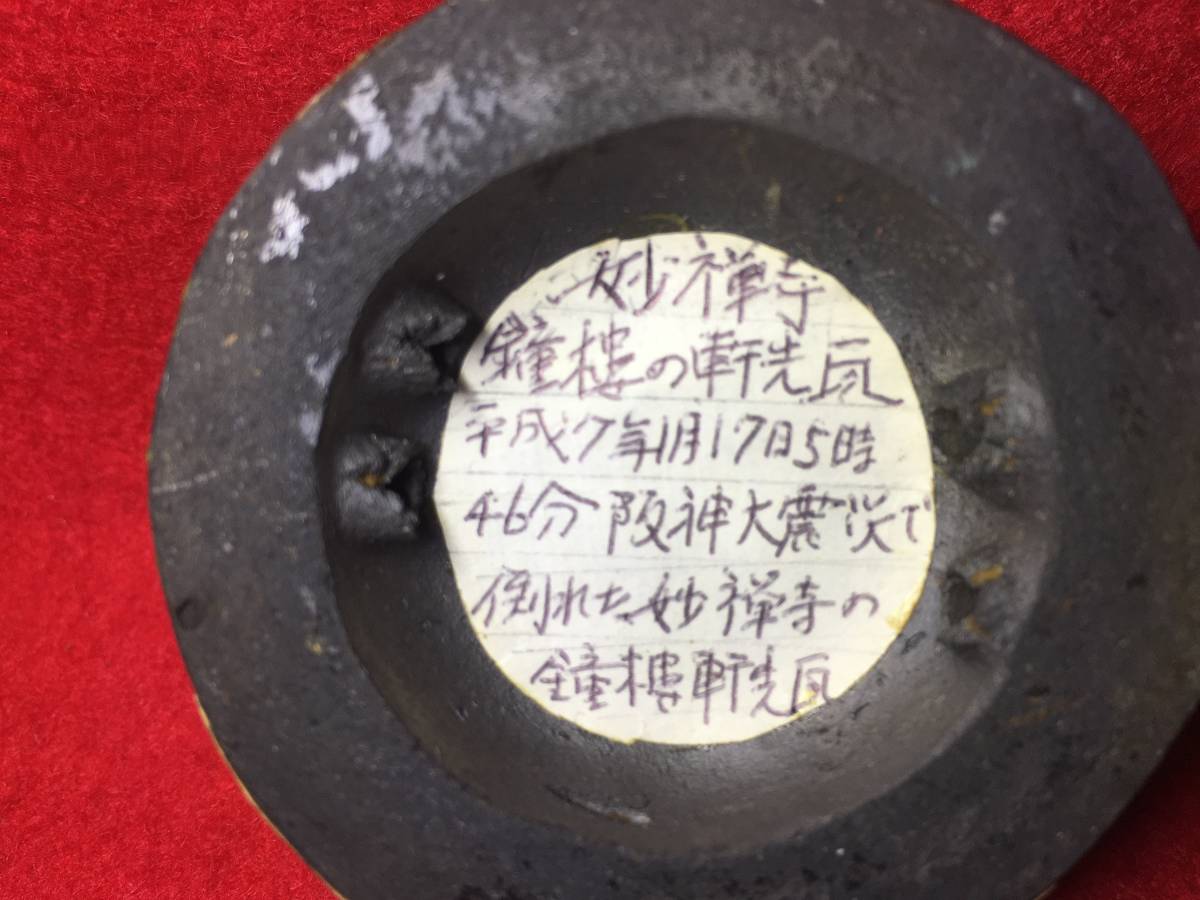 妙禅寺
鐘楼の軒先瓦
平成7年1月17日5時
46分阪神大震災で
倒れた妙禅寺の
鐘楼軒先瓦